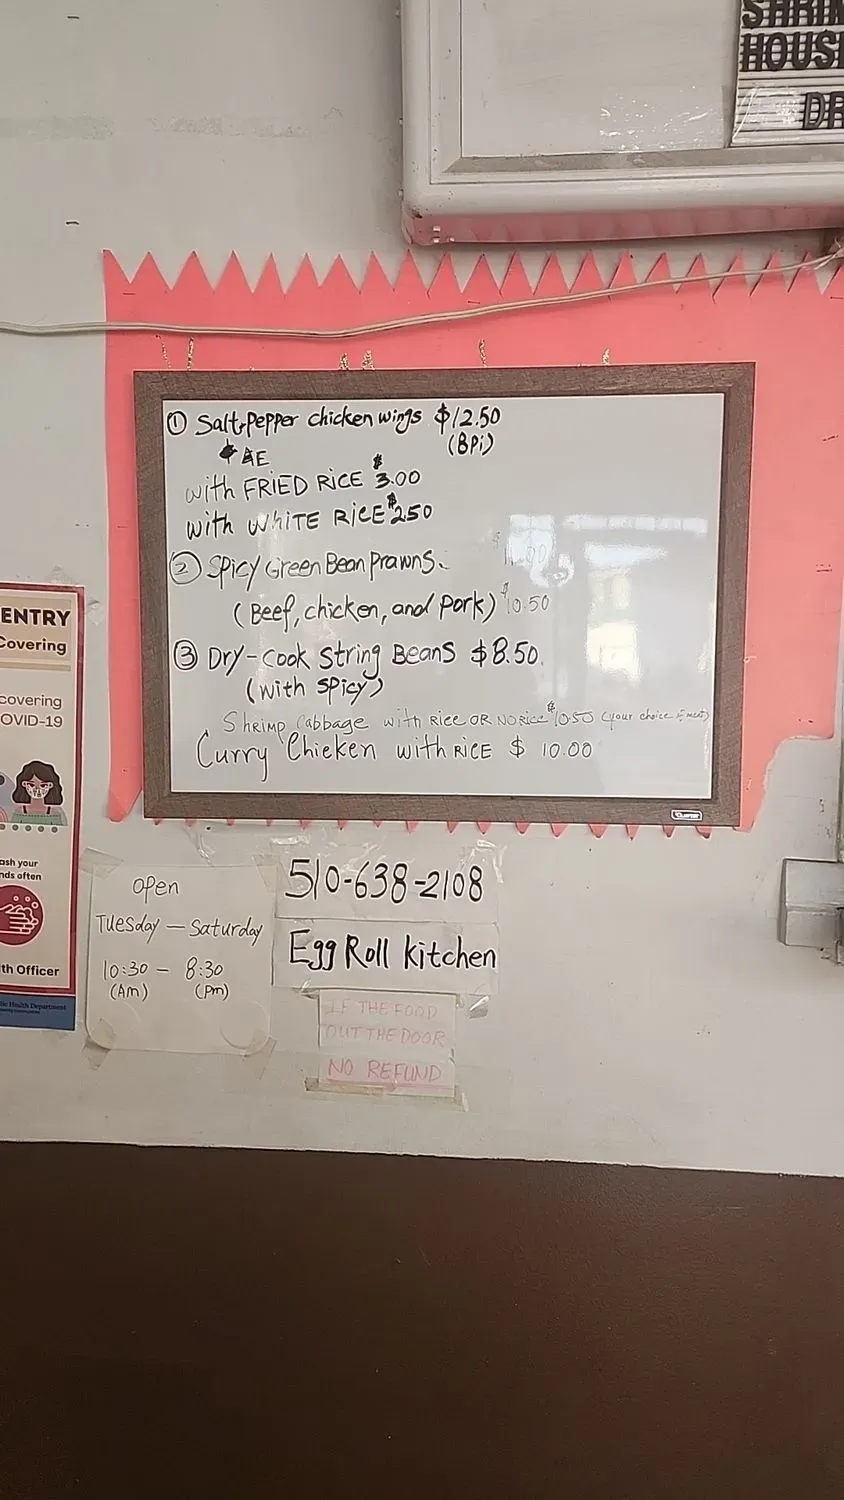 SHRIM
HOUSE
DR
① Salt & Pepper chicken wings $12.50
(8Pi)
with FRIED RiCE $3.00
with WhiTE RiCE $2.50
② Spicy Green Bean Prawns.
(Beef, chicken, and Pork) $10.50
③ Dry-Cook String Beans $8.50
(with Spicy)
Shrimp Cabbage with Rice OR NO Rice $10.50 (your choice of meat)
Curry Chicken with RICE $ 10.00
ENTRY
Covering
covering
OVID-19
ash your
nds often
th Officer
lic Health Department
open
Tuesday — Saturday
10:30 — 8:30
(Am) (Pm)
510-638-2108
Egg Roll kitchen
IF THE FOOD
OUT THE DOOR
NO REFUND